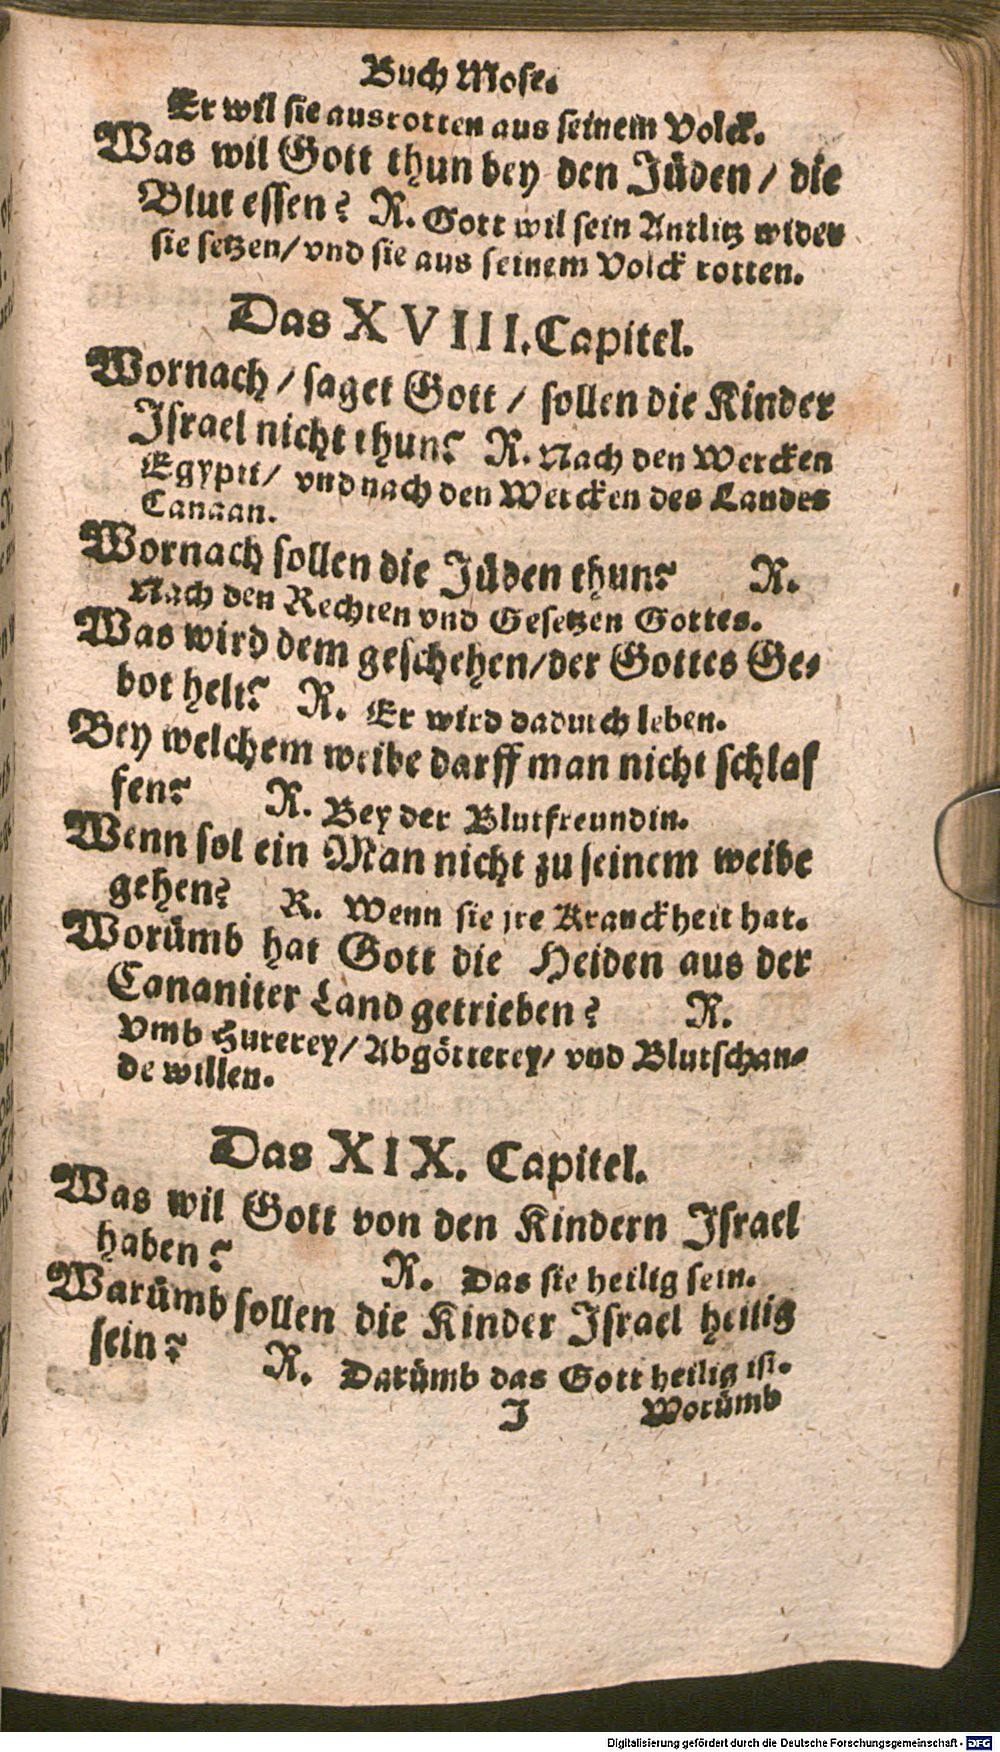 Buch Mose.
Er wil sie ausrotten aus seinem Volck.
Was wil Gott thun bey den Jüden / die
Blut essen? R. Gott wil sein Antlitz wider
sie setzen/ vnd sie aus seinem Volck rotten.
Das XVIII. Capitel.
Wornach / saget Gott / sollen die Kinder
Israel nicht thun? R. Nach den Wercken
Egypti/ vnd nach den Wercken des Landes
Canaan.
Wornach sollen die Jüden thun? R.
Nach den Rechten vnd Gesetzen Gottes.
Was wird dem geschehen/der Gottes Ge-
bot helt? R. Er wird dadurch leben.
Bey welchem weibe darff man nicht schlaf
fen? R. Bey der Blutfreundin.
Wenn sol ein Man nicht zu seinem weibe
gehen? R. Wenn sie jre Kranckheit hat.
Worümb hat Gott die Heiden aus der
Cananiter Land getrieben? R.
Vmb Hurerey/ Abgötterey/ vnd Blutschan-
de willen.
Das XIX. Capitel.
Was wil Gott von den Kindern Israel
haben? R. Das sie heilig sein.
Warümb sollen die Kinder Israel heilig
sein? R. Darümb das Gott heilig ist.
J Worümb
Digitalisierung gefördert durch die Deutsche Forschungsgemeinschaft - DFG